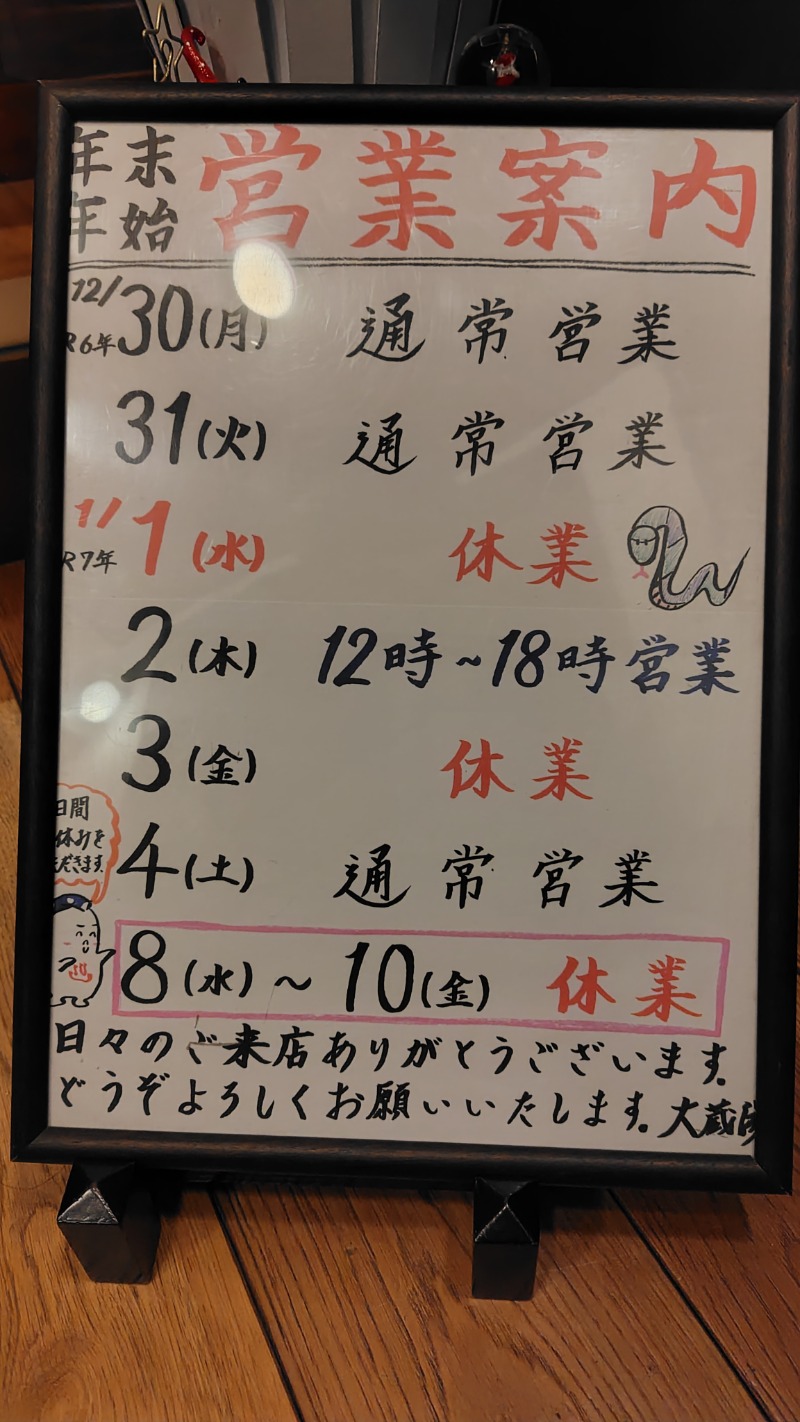 年末
年始 営業案内
12/30(月) 通常営業
R6年
31(火) 通常営業
1/1(水) 休業
R7年
2(木) 12時~18時営業
3(金) 休業
4(土) 通常営業
日間
休みを
だきます。
8(水)~10(金) 休業
日々のご来店ありがとうございます。
どうぞよろしくお願いいたします。大蔵